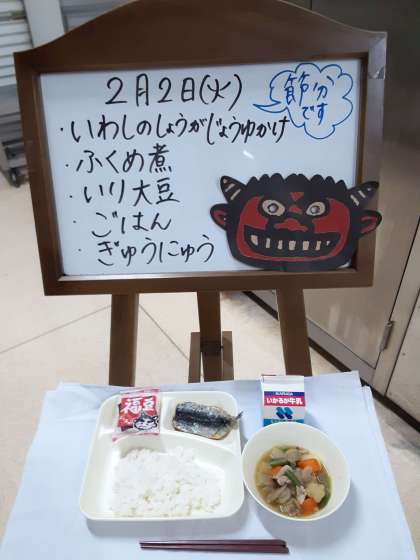 2月2日(火)
節分
です
・いわしのしょうがじょうゆかけ
・ふくめ煮
・いり大豆
・ごはん
・ぎゅうにゅう
福豆
いかるが牛乳